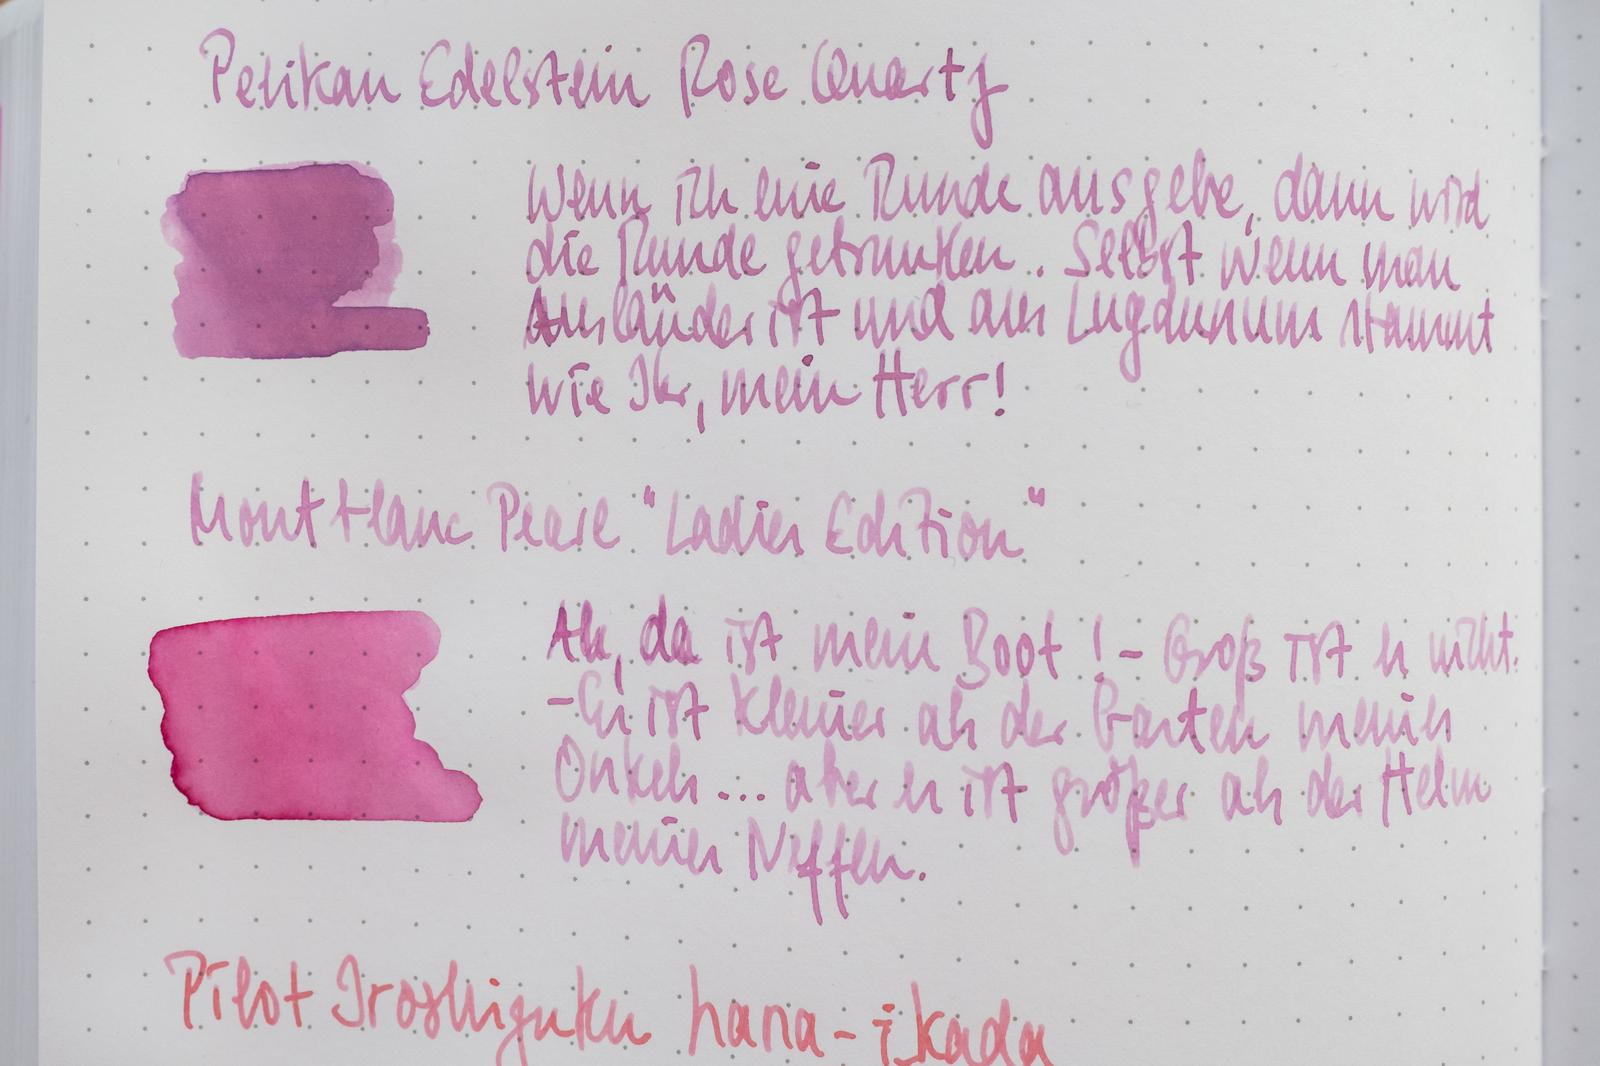 Pelikan Edelstein Rose Quartz
Wenn ich eine Runde ausgebe, dann wird
die Runde getrunken. Selbst wenn man
Ausländer ist und aus Lugdunum stammt
wie Ihr, mein Herr!
Montblanc Pearl "Ladies Edition"
Ah, da ist mein Boot! - Groß ist es nicht.
- Es ist kleiner als der Garten meines
Onkels... aber es ist größer als der Helm
meines Neffen.
Pilot Iroshizuku hana-ikada